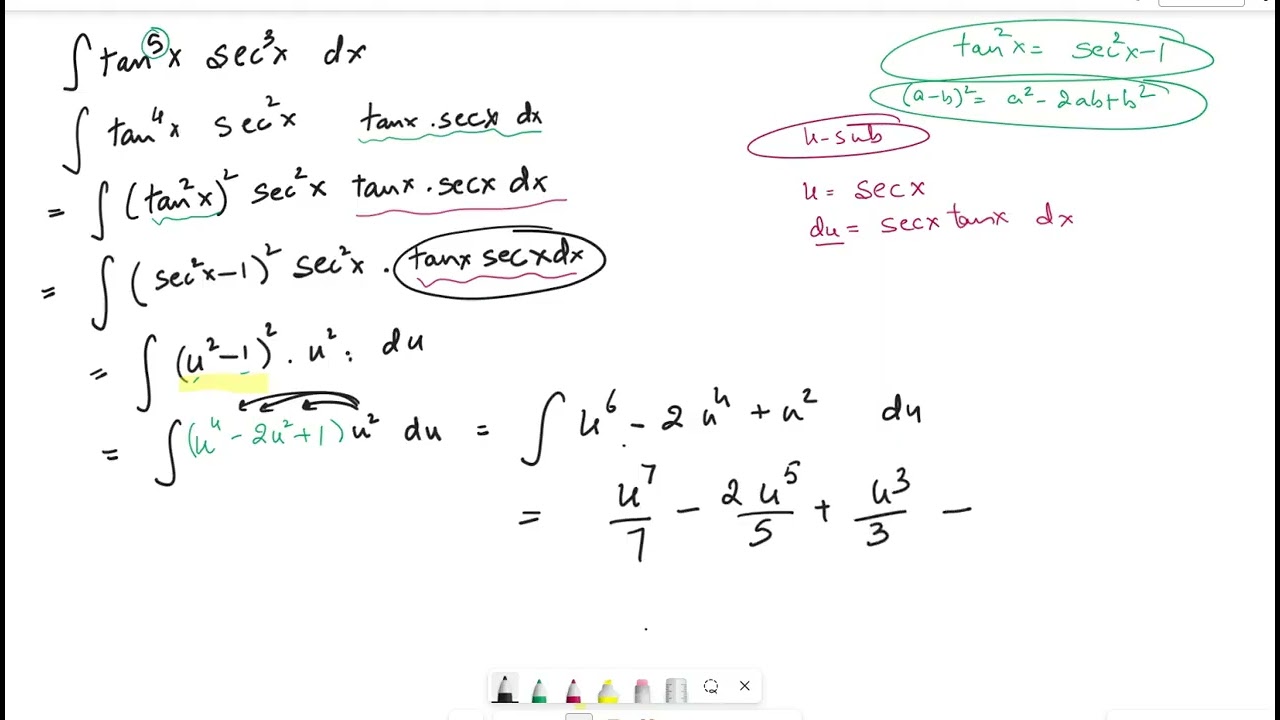 ∫ tan⁵x sec³x dx
∫ tan⁴x sec²x tanx . secx dx
= ∫ (tan²x)² sec²x tanx . secx dx
= ∫ (sec²x-1)² sec²x . tanx secxdx
= ∫ (u²-1)² . u² . du
= ∫ (u⁴ - 2u² + 1) u² du = ∫ u⁶ - 2u⁴ + u² du
= u⁷/7 - 2u⁵/5 + u³/3 -
tan²x = sec²x-1
(a-b)² = a² - 2ab+b²
u-sub
u = secx
du = secx tanx dx